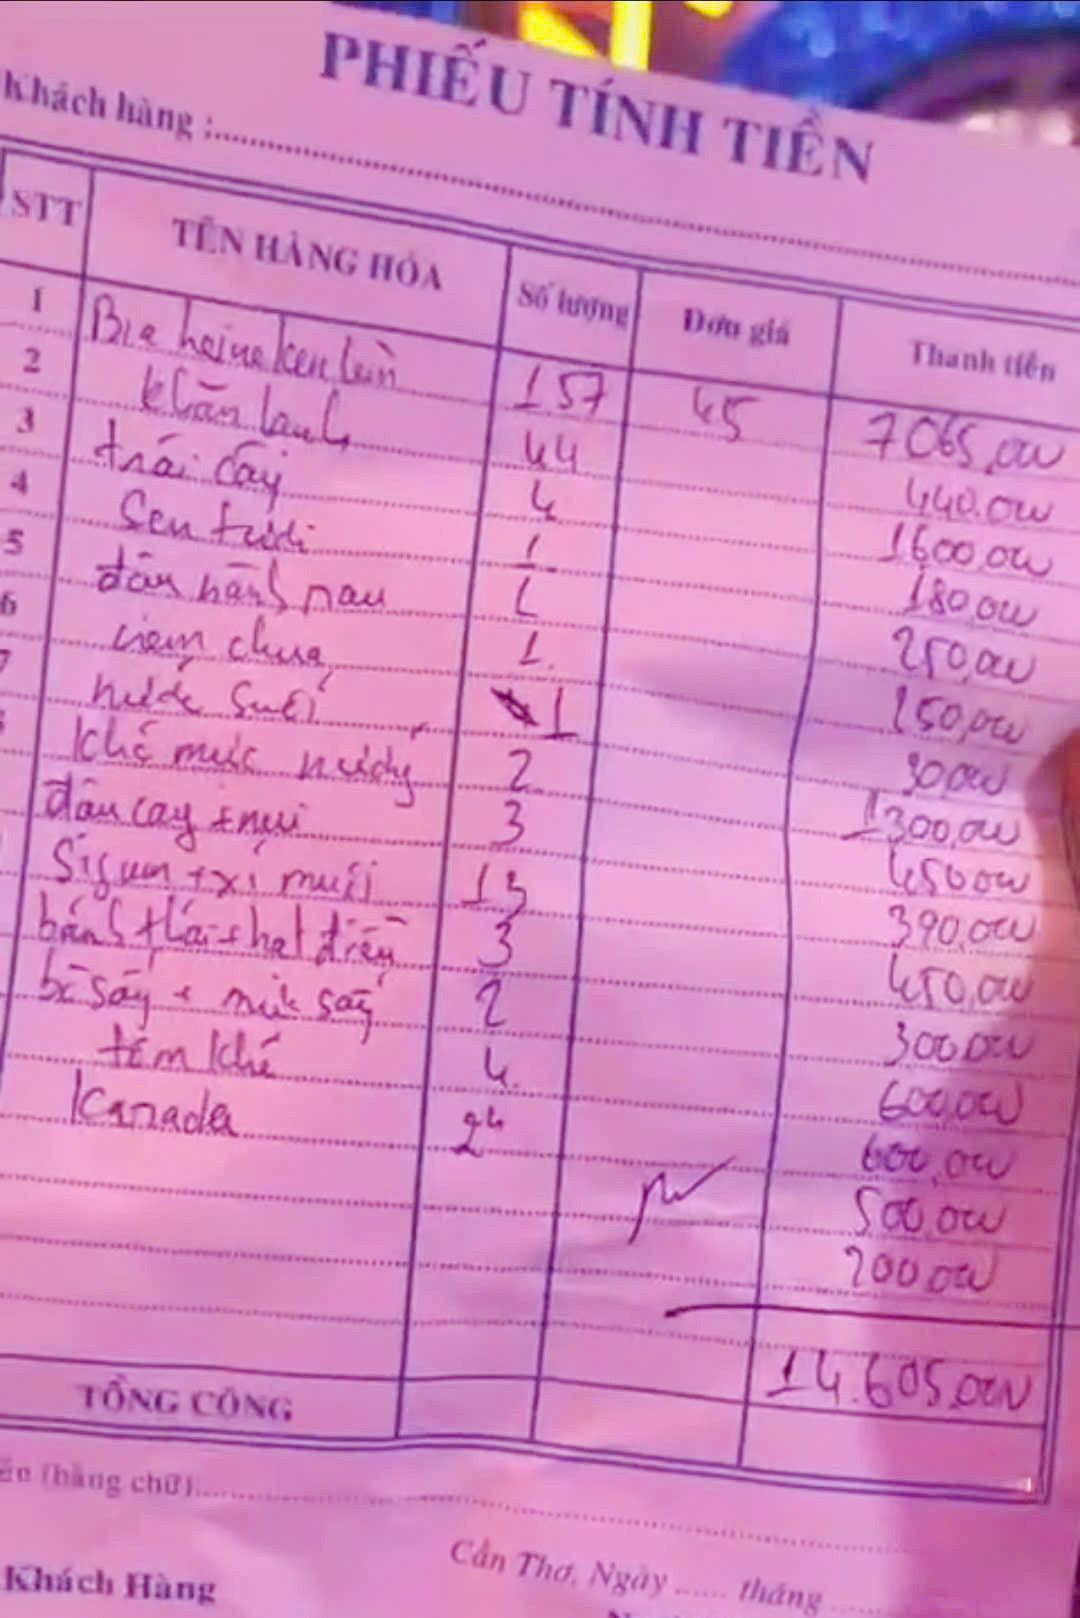 PHIẾU TÍNH TIỀN
Khách hàng :
STT TÊN HÀNG HÓA Số lượng Đơn giá Thanh tiền
1 Bia heineken lùn 157 45 7065,000
2 khăn lạnh 44 440.000
3 trái cây 4 1600,000
4 Sen tươi 1 180,000
5 đậu hành nau 1 250,000
6 chua 1. 150,000
7 nước suối 1 30,000
Khô mực nướng 2 1300,000
đậu cay + nui 3 450,000
Sigum + xí muối 13 390,000
bánh + hạt điều 3 450,000
bò sấy + mít sấy 2 300,000
tôm khô 4. 600,000
Kanada 24 600,000
500,000
200,000
14.605,000
TỔNG CỘNG
(bằng chữ)
Cần Thơ, Ngày ...... tháng ......
Khách Hàng